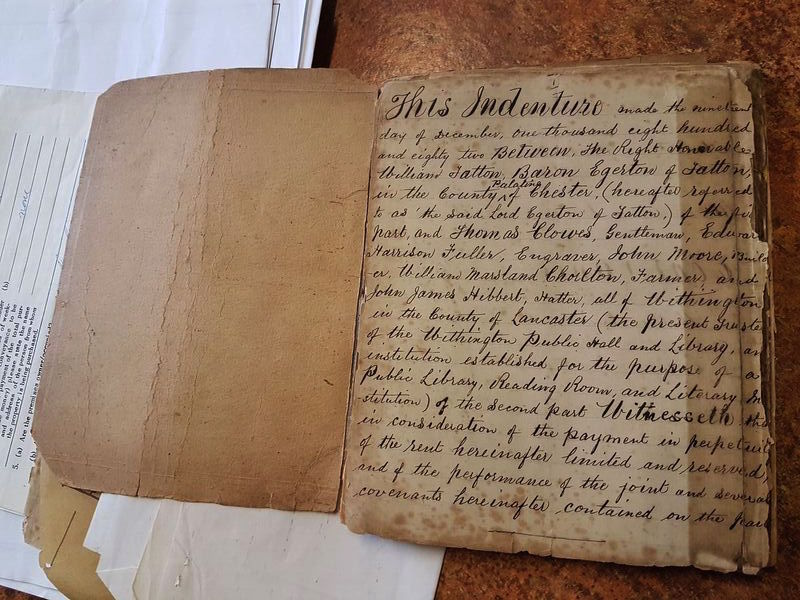 This Indenture made the nineteent
day of December, one thousand eight hundred
and eighty two Between, The Right Honorable
William Tatton, Baron Egerton of Tatton,
in the County Palatine of Chester, (hereafter referred
to as 'the said Lord Egerton of Tatton,) of the fir
part, and Thomas Clowes, Gentleman, Edwar
Harrison Fuller, Engraver, John Moore, Buil
er, William Marsland Chorlton, Farmer, and
John James Hibbert, Hatter, all of Withington
in the County of Lancaster (the present Truste
of the Withington Public Hall and Library, an
institution established for the purpose of a
Public Library, Reading Room, and Literary In
stitution) of the second part Witnesseth tha
in consideration of the payment in perpetuit
of the rent hereinafter limited and reserved,
and of the performance of the joint and several
covenants hereinafter contained on the part
none
(b)
address of
please state
the property is being purchased.
5. (a) Are the premises
(b)